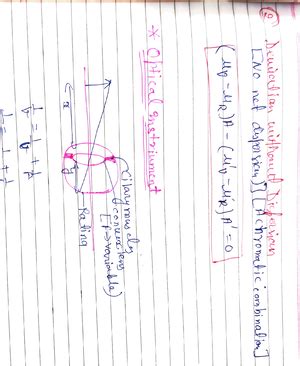 ② Deviation without Dispersion
[No net dispersion] [Achromatic combination]
(μv − μR)A − (μ'v − μ'R)A' = 0
* Optical instrument
ciliary muscles
convex lens
[f → variable]
Retina
x
y
1/f = 1/v + 1/u